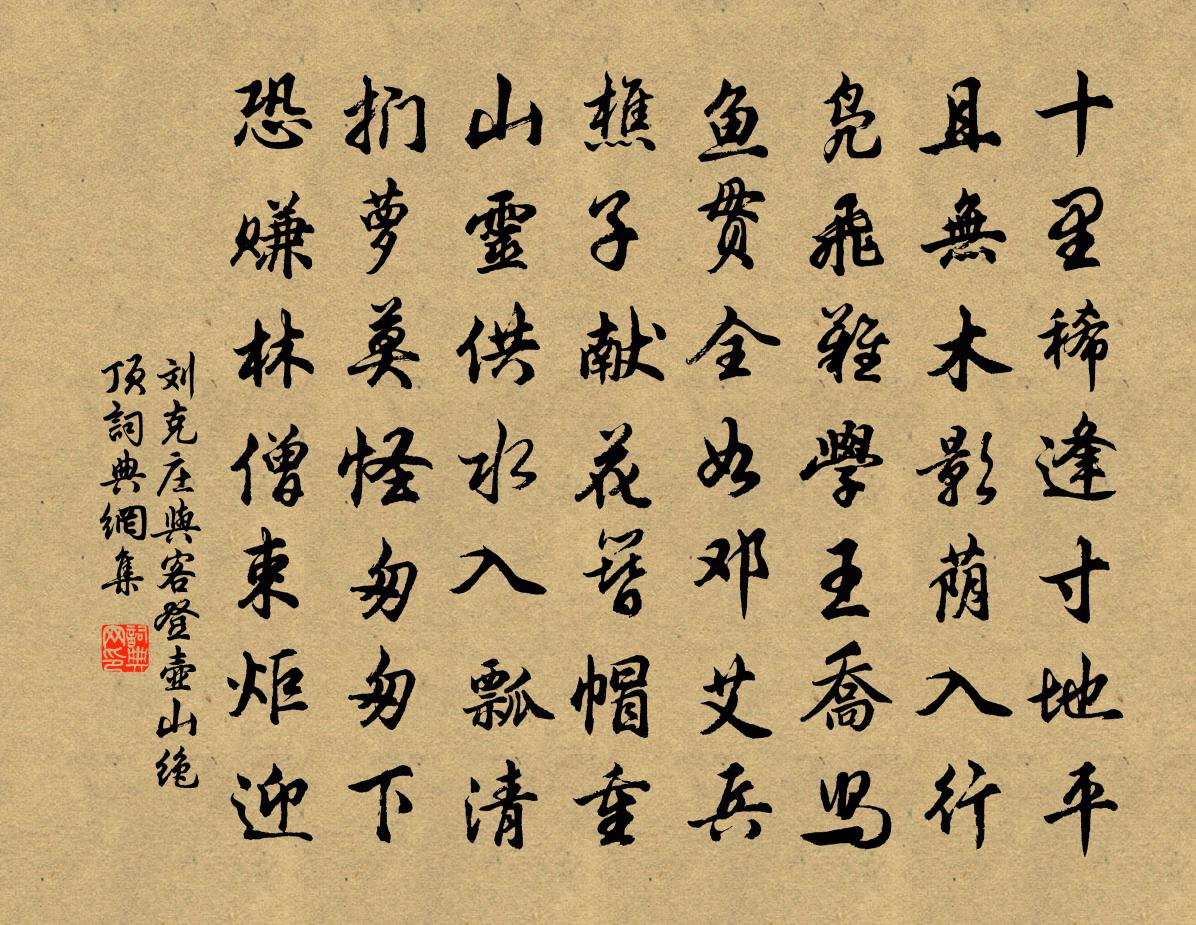 十里稀逢寸地平
且無木影荫入行
凫飛難學王喬舄
鱼贯全如邓艾兵
樵子献花簪帽重
山靈供水入瓢清
扪萝莫怪匆匆下
恐嫌林僧束炬迎
刘克庄與客登壶山绝
顶詞典網集
詞典网印